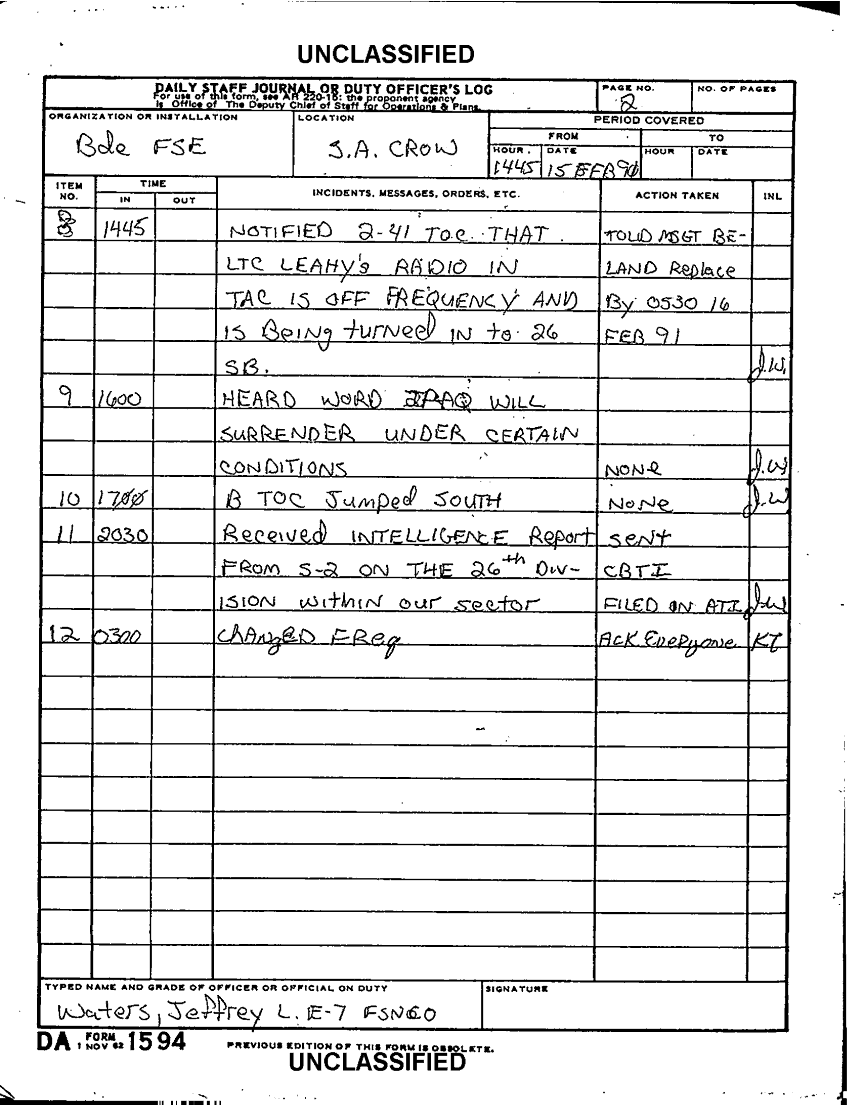 UNCLASSIFIED
DAILY STAFF JOURNAL OR DUTY OFFICER'S LOG
For use of this form, see AR 220-15; the proponent agency
is Office of The Deputy Chief of Staff for Operations & Plans.
PAGE NO.
2
NO. OF PAGES
ORGANIZATION OR INSTALLATION
Bde FSE
LOCATION
S.A. CROW
PERIOD COVERED
FROM
TO
HOUR
DATE
HOUR
DATE
1445 15 FEB 90
ITEM NO.
TIME
IN
OUT
INCIDENTS, MESSAGES, ORDERS, ETC.
ACTION TAKEN
INL
8 1445 NOTIFIED 2-41 TOC THAT TOLD MSGT BE-
LTC LEAHY's RADIO IN LAND Replace
TAC IS OFF FREQUENCY AND By 0530 16
IS Being turned IN to 26 FEB 91
SB. J.W.
9 1600 HEARD WORD IRAQ WILL
SURRENDER UNDER CERTAIN
CONDITIONS NONe J.W
10 1700 B TOC Jumped SOUTH NoNe J.W
11 2030 Received INTELLIGENCE Report sent
FROM S-2 ON THE 26th DIV- CBTI
ISION within our sector FILED IN ATI J.W
12 0300 ChANgED FReq AcK EveRyone KT
TYPED NAME AND GRADE OF OFFICER OR OFFICIAL ON DUTY
Waters, Jeffrey L. E-7 FSNCO
SIGNATURE
DA FORM 1 NOV 62 1594
PREVIOUS EDITION OF THIS FORM IS OBSOLETE.
UNCLASSIFIED